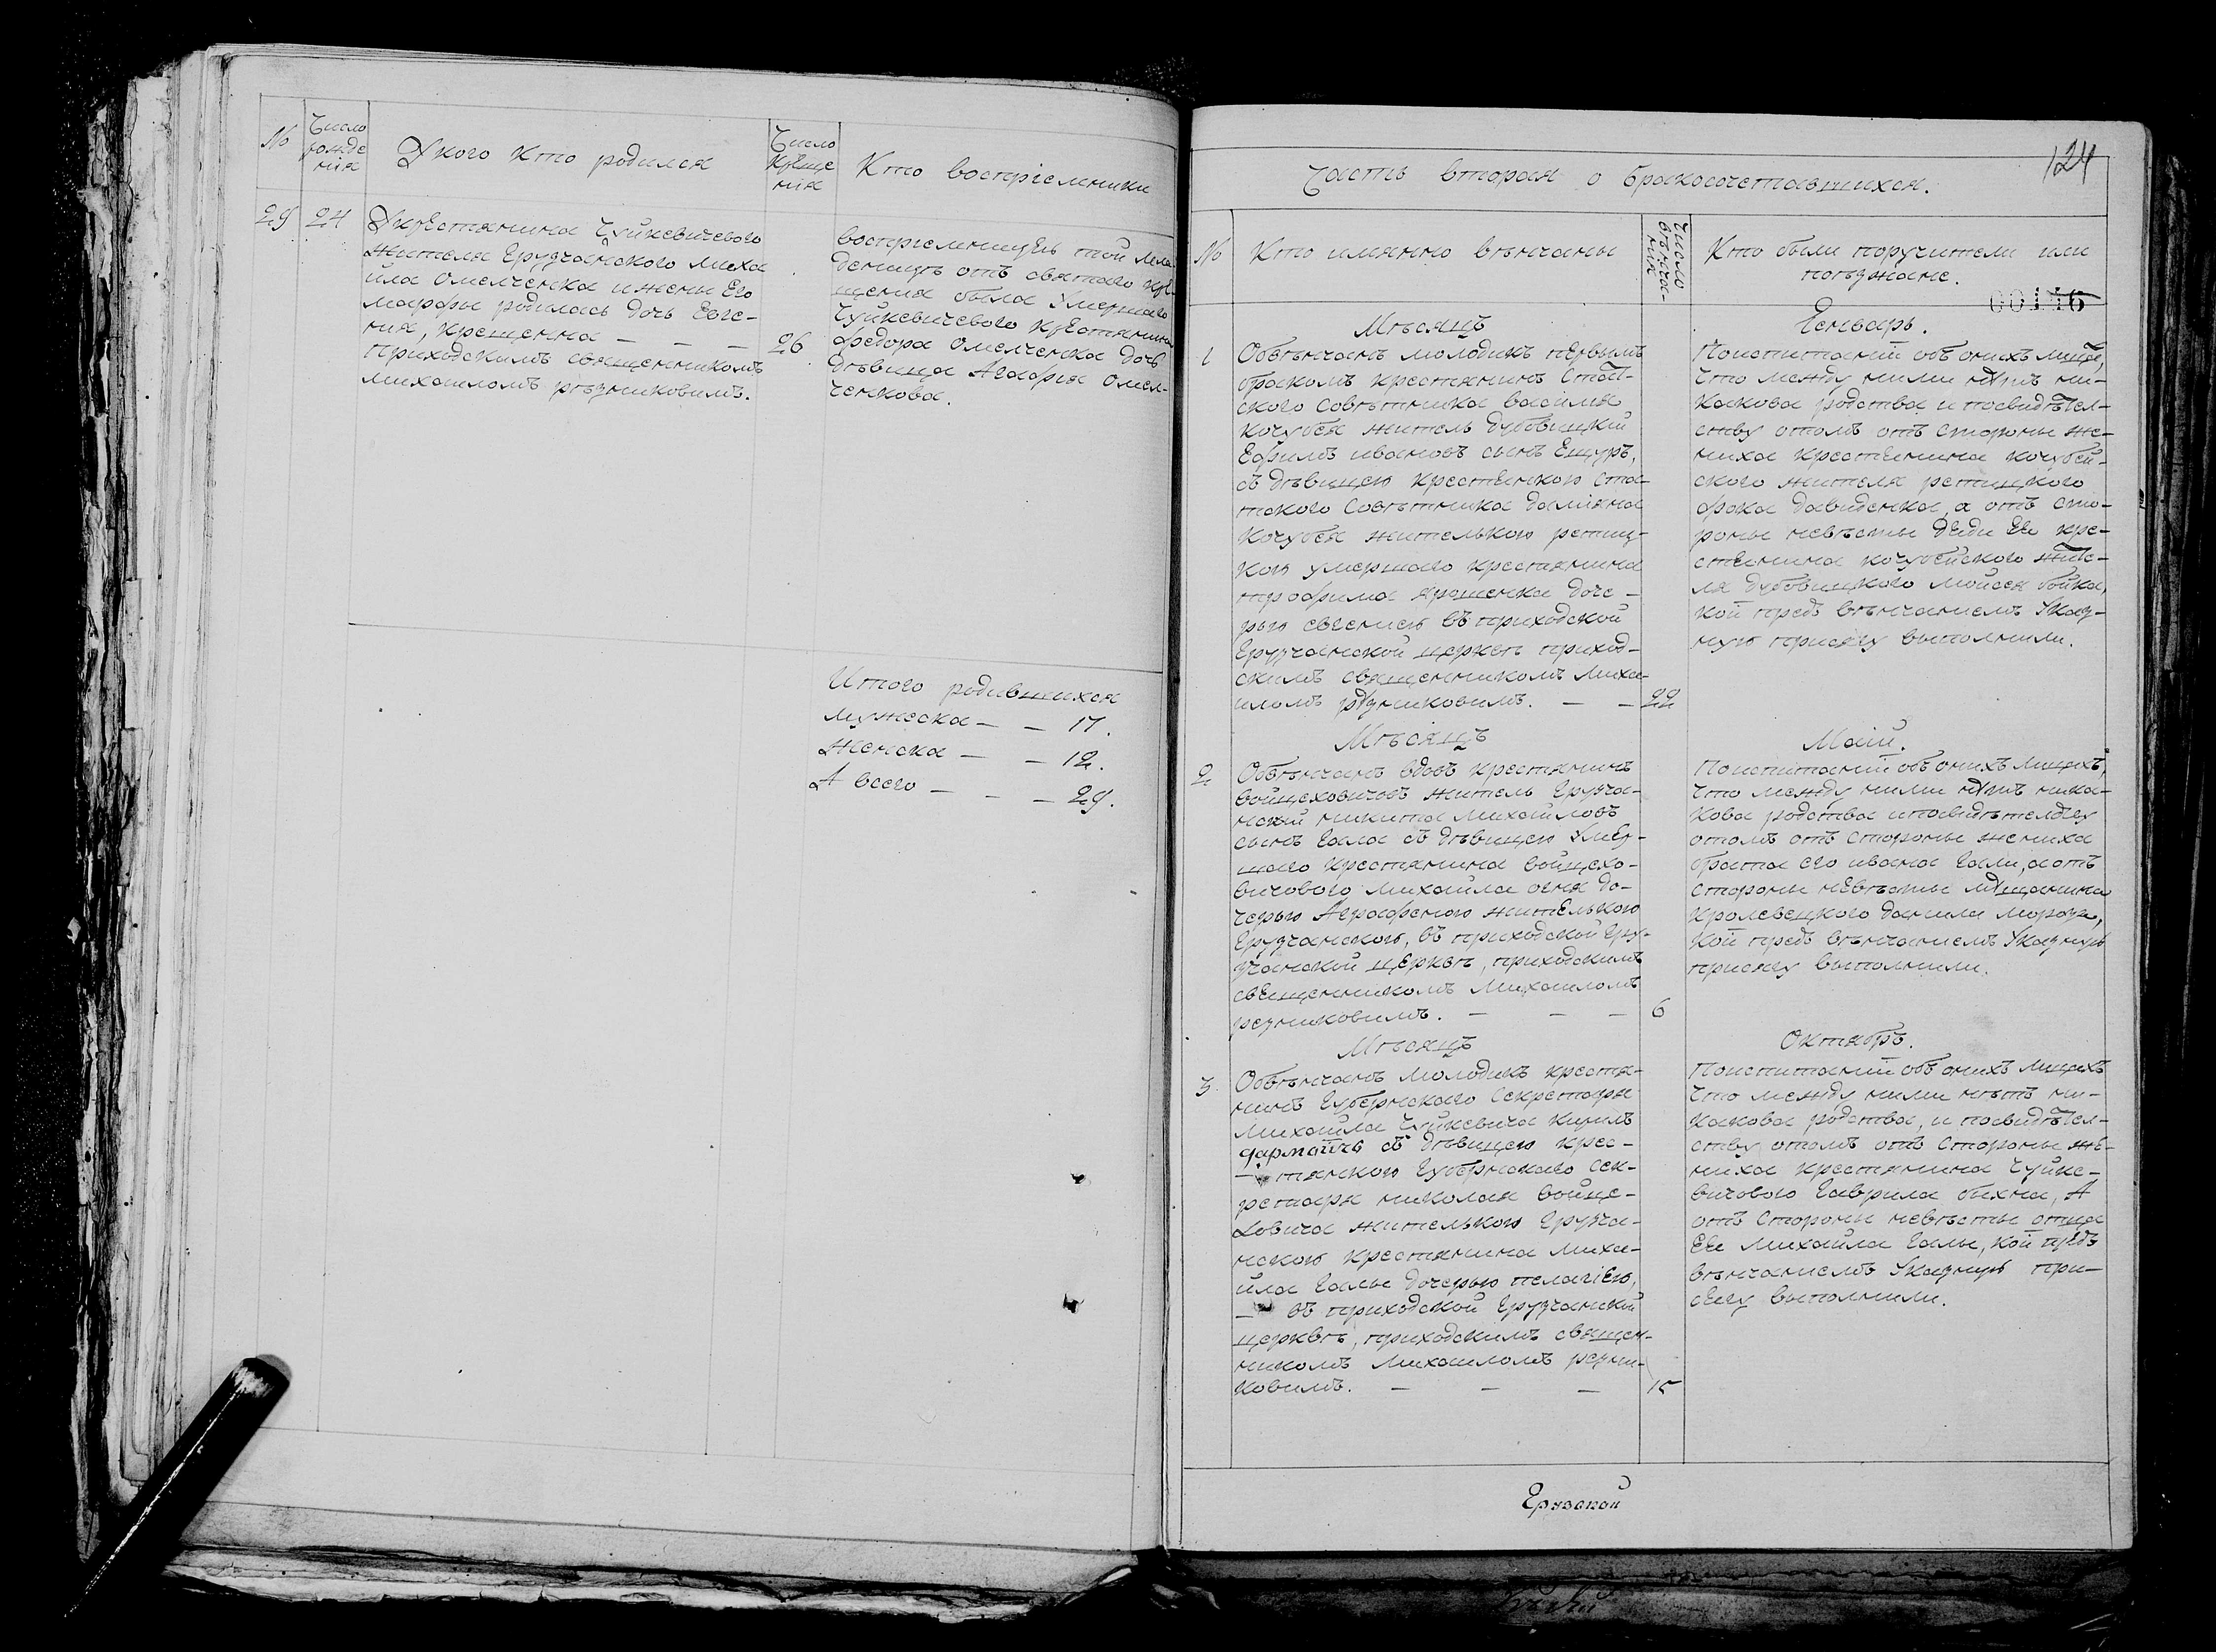 No
Число рожде нія
Укого кто родился
Число Креще нія
Кто воспріемники
29
24
Укрестянина Чуйкевичевого
жителя Грузчанского миха
ила Омелченка ижены Его
марфы родилась дочь Евге-
ния, крещенна — — —
26
Приходскимъ священникомъ
михаиломъ рѣзниковимъ.
воспріемницею той мла
денцъ отъ святаго кре-
щения была Умершаго
Чуйкевичевого крестянина
федора Омелченка дочь
дѣвица Агафія Омел-
ченкова.
Итого родившихся
мужеска — — 17.
женска — — 12.
А всего — — — 29.
124
Часть вторая о бракосочетавшихся.
No
Кто имянно вѣнчаны
Число вѣнча-ния
Кто были поручители или
поезжане.
00116
Мѣсяцъ
Генварь.
1
Обвѣнчанъ молодикъ первимъ
бракомъ крестянинъ Стат-
ского Совѣтника василия
Кочубея житель дубовицкий
Ефимъ ивановъ сынъ Ещуръ,
съ дѣвицею крестянкою Ста-
тского Совѣтника дамияна
Кочубея жителькою ретиц-
кою умершаго крестянина
трофима ярошенка доче-
рью евгениею въ приходской
Грузчанской церквѣ приход-
скимъ священникомъ михаи-
иломъ рѣзниковимъ. — —
22
Поиспитаний объ онихъ лицѣ,
что между ними нѣтъ ни-
какова родства и посвидѣтел-
ству отомъ отъ Стороны же-
ниха крестянина кочубей-
ского жителя ретицкого
фока давиденка, а отъ сто-
роны невѣсты дяди Ее кре-
стянина кочубейского жите-
ля дубовицкого мойсея бойка,
кой предъ вѣнчаниемъ Указ-
ную присягу выполнили.
Мѣсяцъ
Маій.
2
Обвѣнчанъ вдовъ крестянинъ
войцеховичовъ житель Грузча-
нский никита михайловъ
сынъ Гала съ дѣвицею Умер-
шаго крестянина войцехо-
вичового михайла огня до-
черью Агрофеною жителькою
Грузчанскою, въ приходской Гру-
зчанской церквѣ, приходскимъ
священникомъ михаиломъ
резниковимъ. — — —
6
Поиспитаний объ онихъ лицехъ,
что между ними нѣтъ ника-
кова родства ипосвидѣтелству
отомъ отъ Стороны жениха
брата его ивана Гали, аотъ
Стороны невѣсты мѣщанина
кролевецкого данила мороза,
кой предъ вѣнчаниемъ Указную
присягу выполнили.
Мѣсяцъ
Октябрь.
3
Обвѣнчанъ молодикъ крестя-
нинъ Губернского Секретаря
михайла Чуйкевича кирилъ
съ дѣвицею крес-
тянкою Губернского Сек-
ретаря николая войце-
ховича жителькою Грузча-
нскою крестянина миха-
ила Галы дочерью пелагіею,
— въ приходской Грузчанской
церквѣ, приходскимъ священ-
никомъ михаиломъ резни-
ковимъ. — — —
15
Поиспитаний объ онихъ лицехъ
что между ними нѣтъ ни-
какова родства, и посвидѣтел-
ству отомъ отъ Стороны же-
ниха крестянина Чуйке-
вичового Гаврила бихна, А
отъ Стороны невѣсты отца
Ее михайла Галы, кой предъ
вѣнчаниемъ Указную при-
сягу выполнили.
Грузской